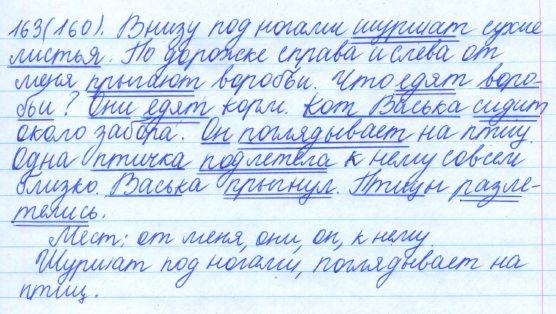 163(160). Внизу под ногами шуршат сухие
листья. По дорожке справа и слева от
меня прыгают воробьи. Что едят воро-
бьи? Они едят корм. Кот Васька сидит
около забора. Он поглядывает на птиц.
Одна птичка подлетела к нему совсем
близко. Васька прыгнул. Птицы разле-
телись.
Мест: от меня, они, он, к нему.
Шуршат под ногами, поглядывает на
птиц.